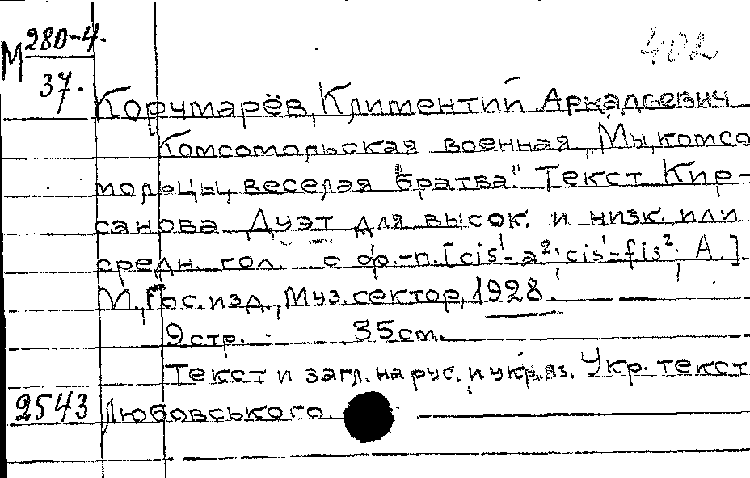 М 280-4.
37.
402
Корчмарёв, Климентий Аркадьевич
Комсомольская военная „Мы, комсо
мольцы, веселая братва". Текст Кир-
санова. Дуэт для высок. и низк. или
средн. гол. с ф.-п. [cis¹-a²; cis¹-fis²; A.]
М., Гос. изд., Муз. сектор, 1928.
9 стр. 35 cm.
Текст и загл. на рус. и укр. яз. Укр. текст
2543 Любовського.